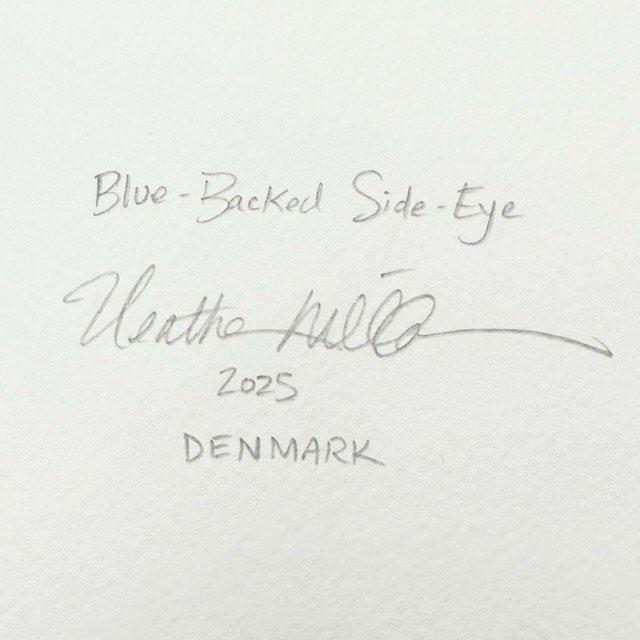 Blue-Backed Side-Eye
Heather
2025
DENMARK